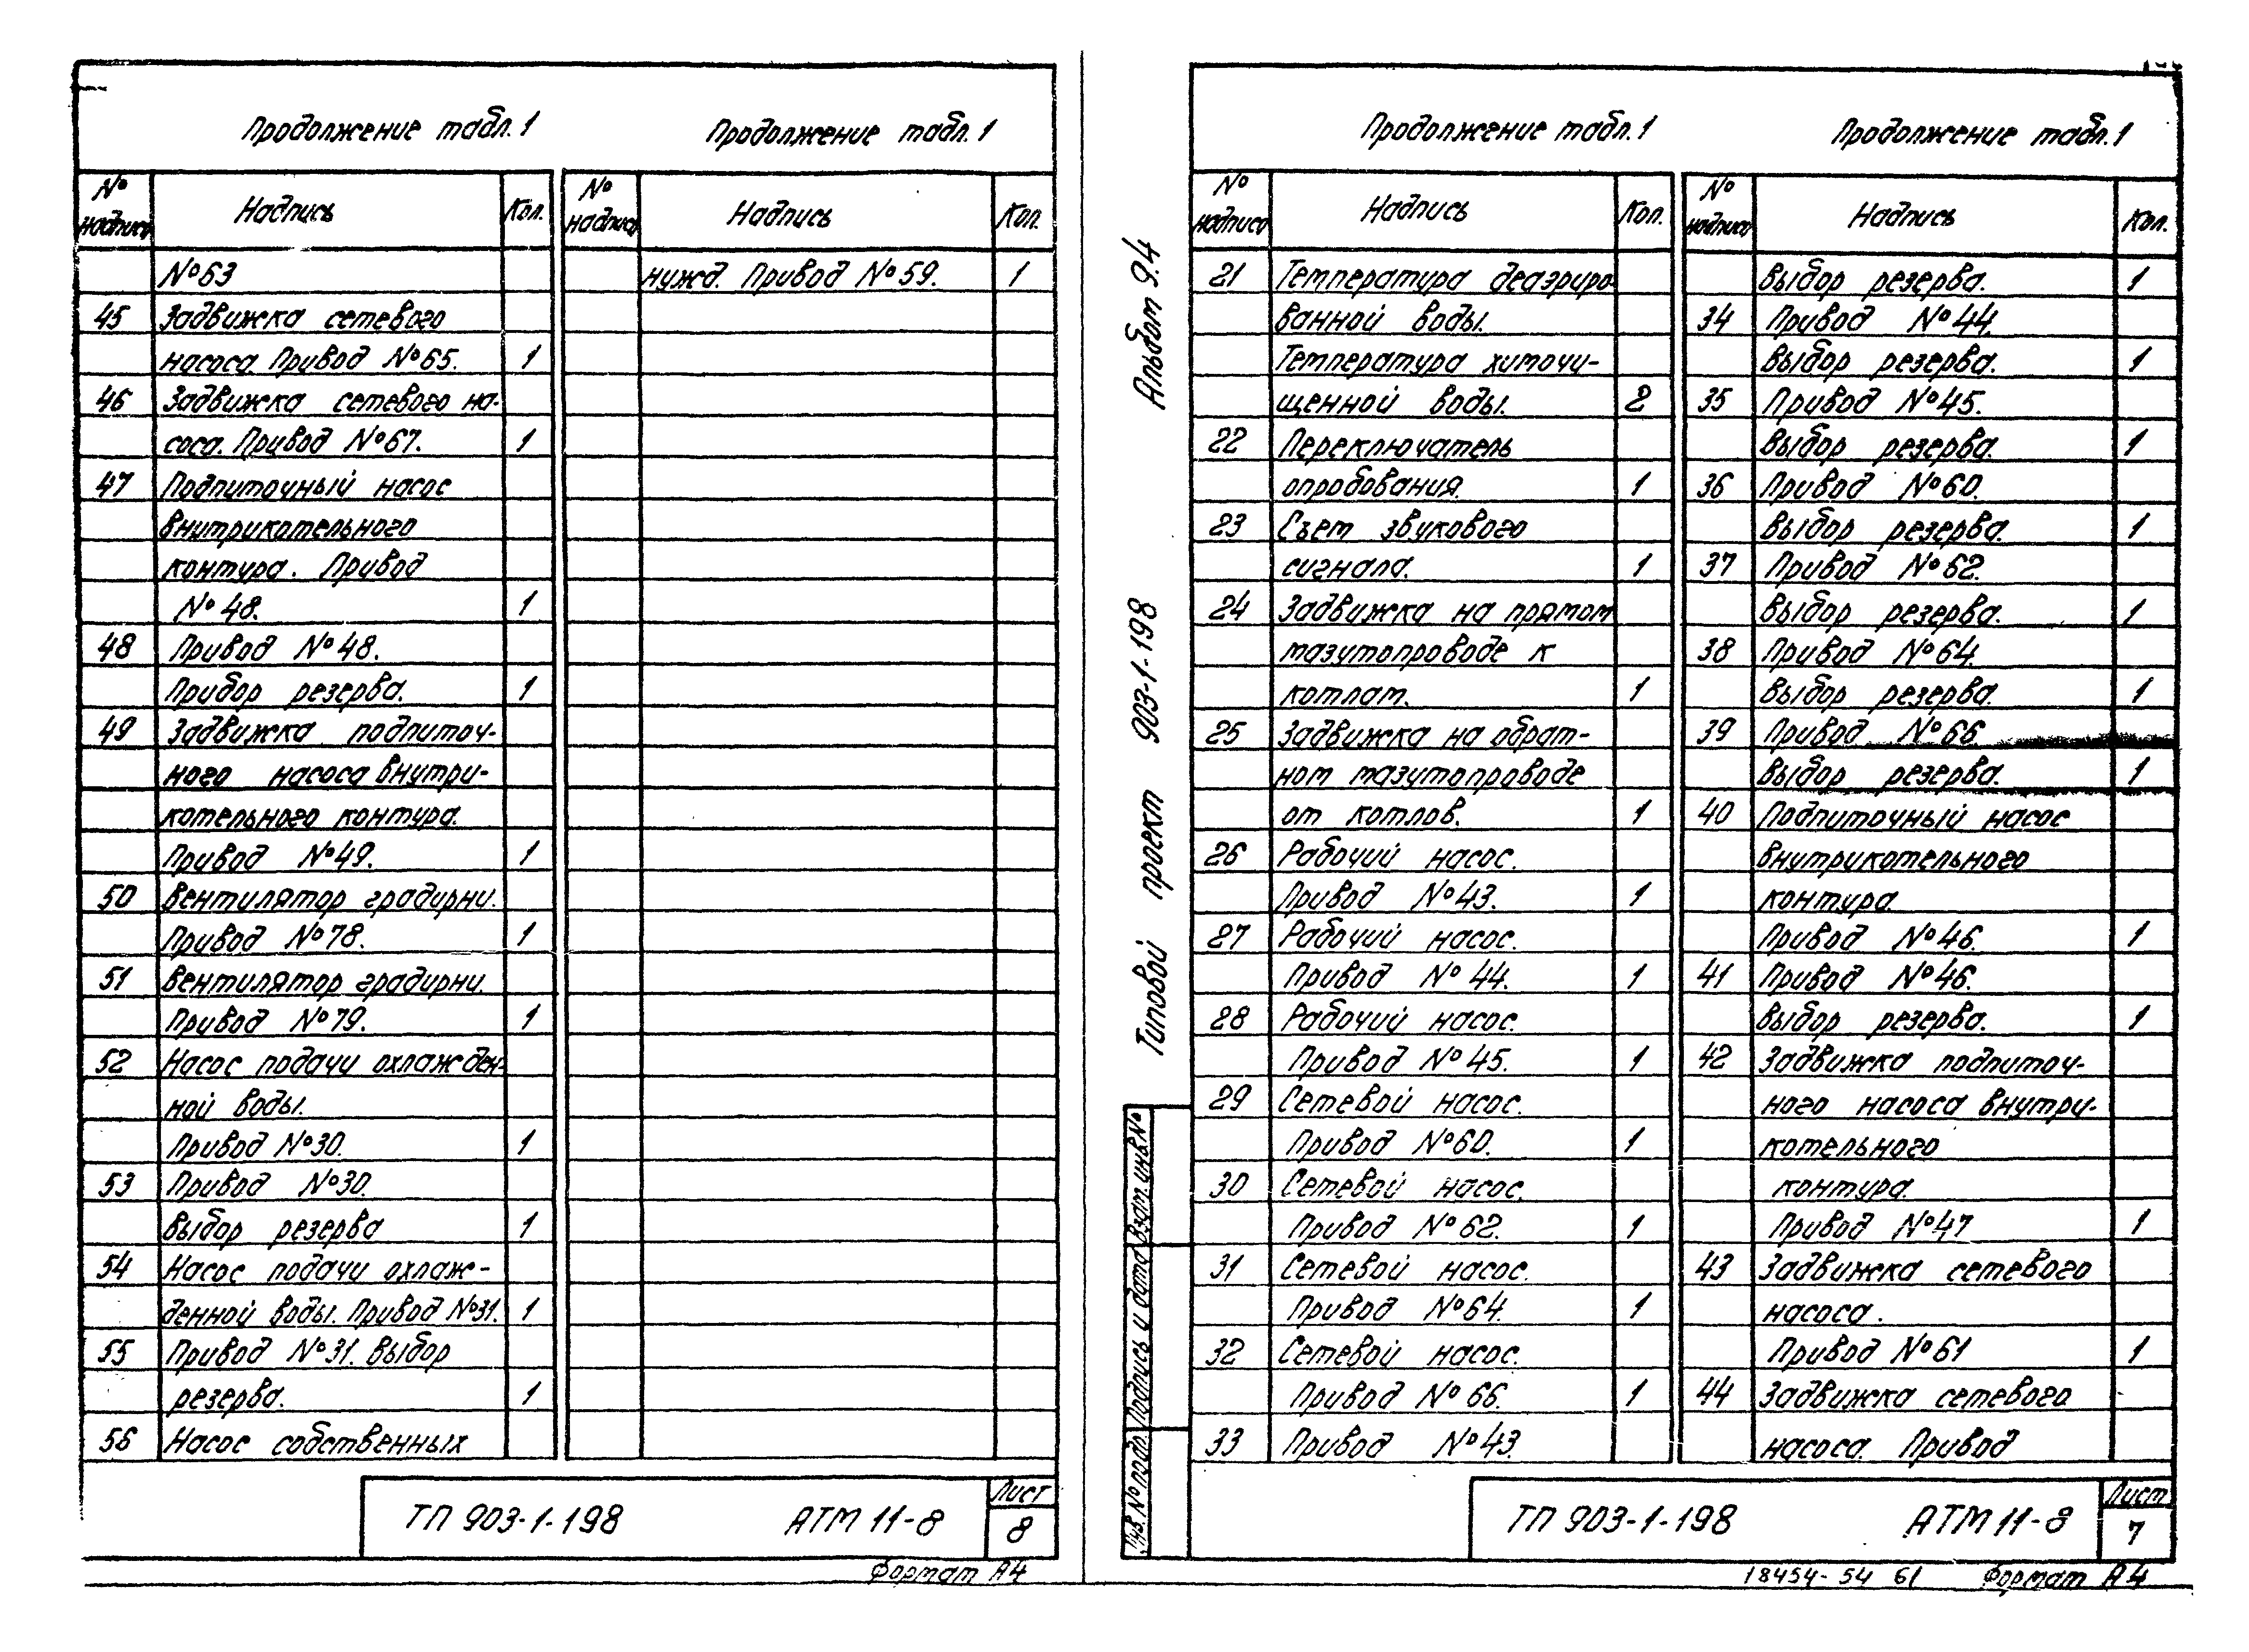 Продолжение табл. 1
Продолжение табл. 1
№ надписи Надпись Кол.
№ надписи Надпись Кол.
№63
45 Задвижка сетевого
насоса Привод №65. 1
46 Задвижка сетевого на-
соса. Привод №67. 1
47 Подпиточный насос
внутрикотельного
контура. Привод
№48. 1
48 Привод №48.
Прибор резерва. 1
49 Задвижка подпиточ-
ного насоса внутри-
котельного контура.
Привод №49. 1
50 Вентилятор градирни.
Привод №78. 1
51 Вентилятор градирни.
Привод №79. 1
52 Насос подачи охлажден-
ной воды.
Привод №30. 1
53 Привод №30.
Выбор резерва 1
54 Насос подачи охлаж-
денной воды. Привод №31. 1
55 Привод №31. Выбор
резерва. 1
56 Насос собственных
нужд. Привод №59. 1
ТП 903-1-198 АТМ 11-8
Лист
8
Формат А4
Альбом 9.4
Типовой проект 903-1-198
Взам. инв №
Подпись и дата
Инв. № подл.
Продолжение табл. 1
Продолжение табл. 1
№ надписи Надпись Кол.
№ надписи Надпись Кол.
21 Температура деаэриро-
ванной воды.
Температура химочи-
щенной воды. 2
22 Переключатель
опробования. 1
23 Съем звукового
сигнала. 1
24 Задвижка на прямом
мазутопроводе к
котлам. 1
25 Задвижка на обрат-
ном мазутопроводе
от котлов. 1
26 Рабочий насос.
Привод №43. 1
27 Рабочий насос.
Привод №44. 1
28 Рабочий насос.
Привод №45. 1
29 Сетевой насос.
Привод №60. 1
30 Сетевой насос.
Привод №62. 1
31 Сетевой насос.
Привод №64. 1
32 Сетевой насос.
Привод №66. 1
33 Привод №43.
Выбор резерва. 1
34 Привод №44.
Выбор резерва. 1
35 Привод №45.
Выбор резерва. 1
36 Привод №60.
Выбор резерва. 1
37 Привод №62.
Выбор резерва. 1
38 Привод №64.
Выбор резерва. 1
39 Привод №66
Выбор резерва. 1
40 Подпиточный насос
внутрикотельного
контура.
Привод №46. 1
41 Привод №46.
Выбор резерва. 1
42 Задвижка подпиточ-
ного насоса внутри-
котельного
контура.
Привод №47 1
43 Задвижка сетевого
насоса.
Привод №61 1
44 Задвижка сетевого
насоса. Привод
ТП 903-1-198 АТМ 11-8
Лист
7
18454-54 61 Формат А4